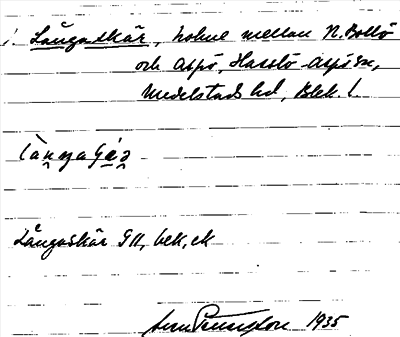 i. Långaskär, holme mellan N. Bollö
och Aspö, Hasslö Aspö sn,
Medelstads hd, Blek. l.
Långaskär GK, bek, ek
1935